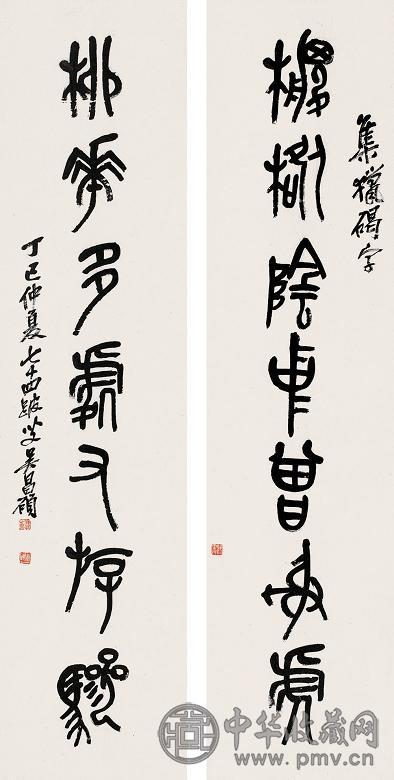 集獵碣字
陰中曾射虎
華多處又驂
丁巳仲夏七十四叟吳昌碩
中华收藏网
www.pmv.cn